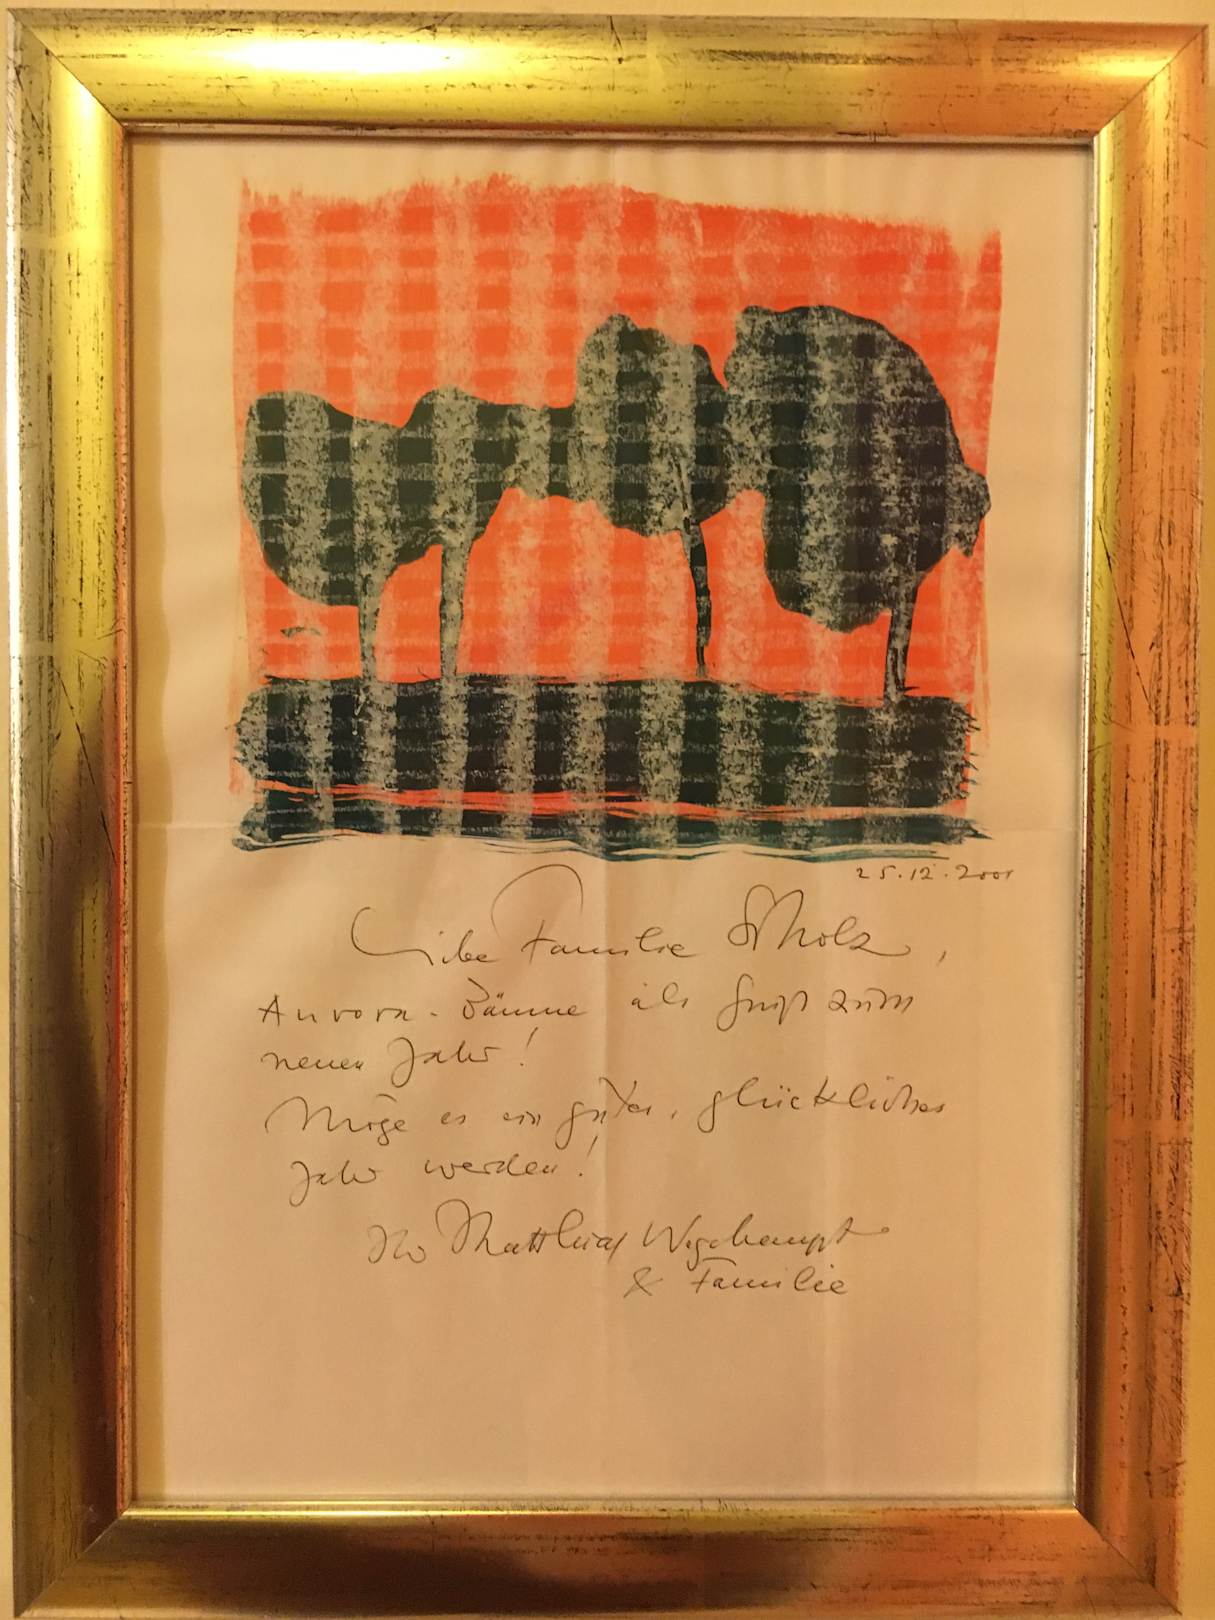 25.12.2001
Liebe Familie Scholz,
Aurora-Bäume als Gruß zum
neuen Jahr!
Möge es ein gutes, glückliches
Jahr werden!
Ihr Matthias Wegehaupt
& Familie